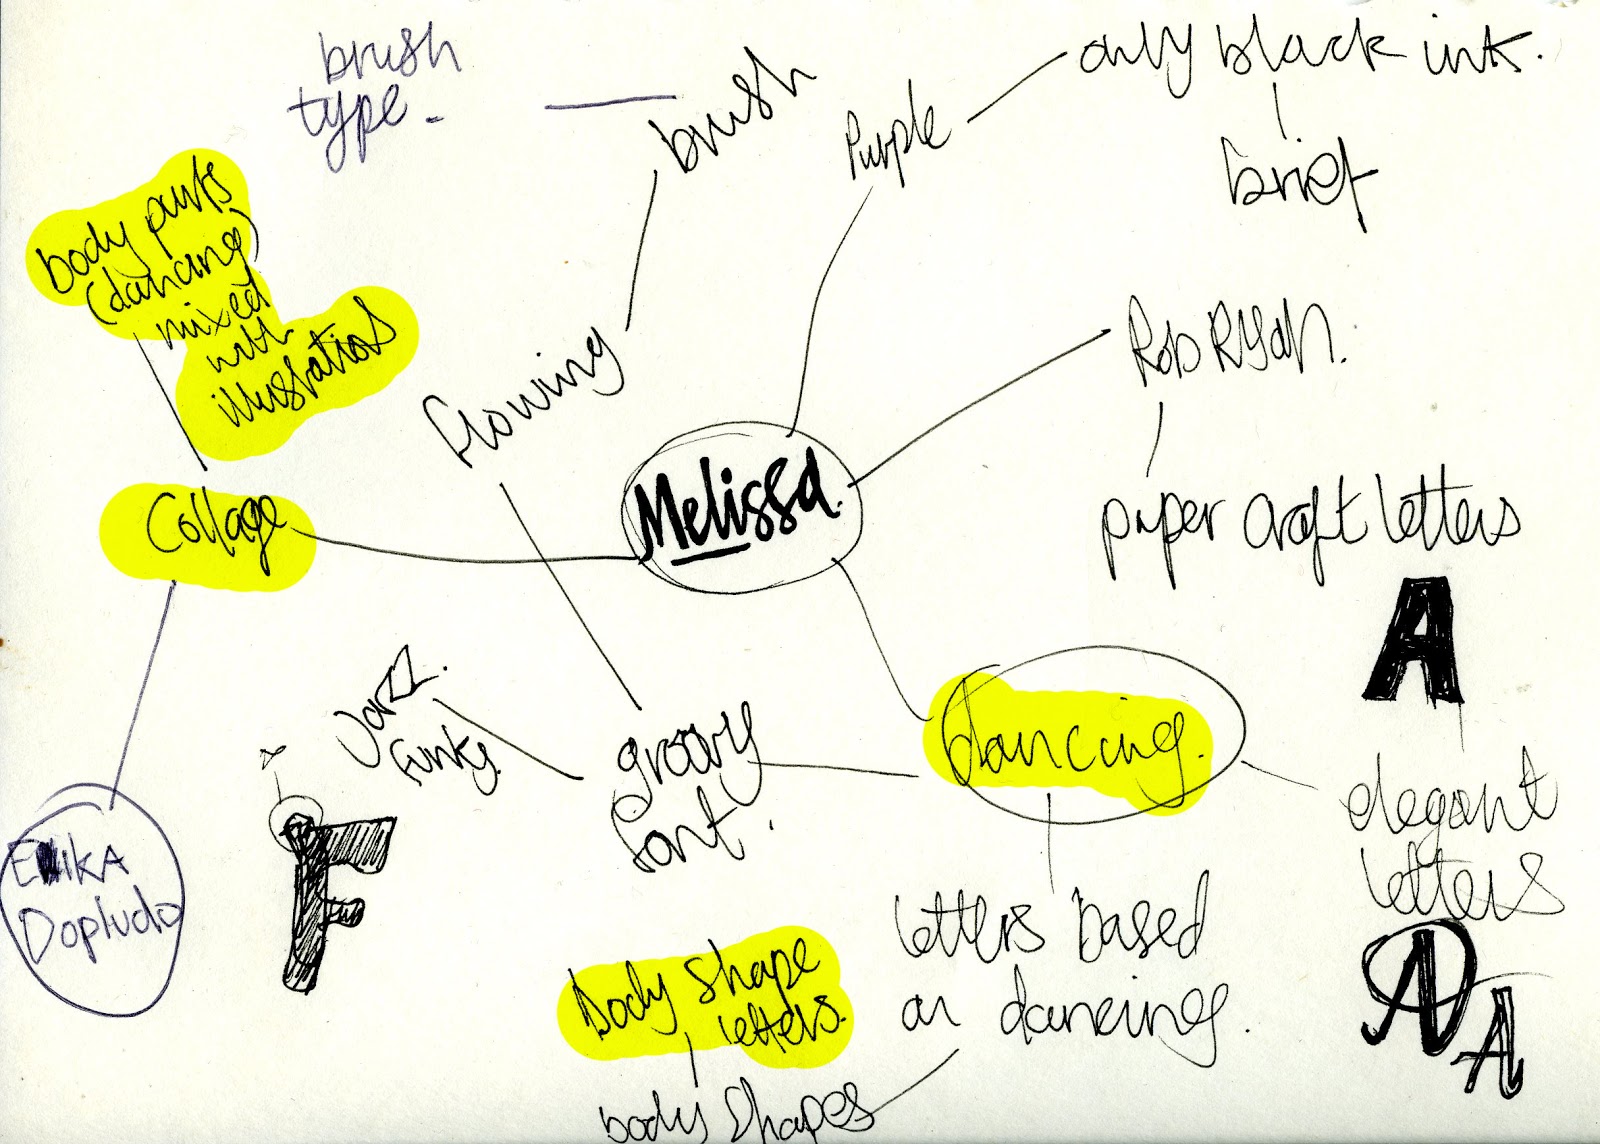 brush
type.
brush
Purple
only black ink.
brief
body parts
(dancing)
mixed
with
illustrations
flowing
Rob Ryan.
paper craft letters
Collage
Melissa.
A
Jazz.
funky.
groovy
font.
dancing.
elegant
letters
F
letters based
on dancing.
Body shape
letters.
body shapes
A
A